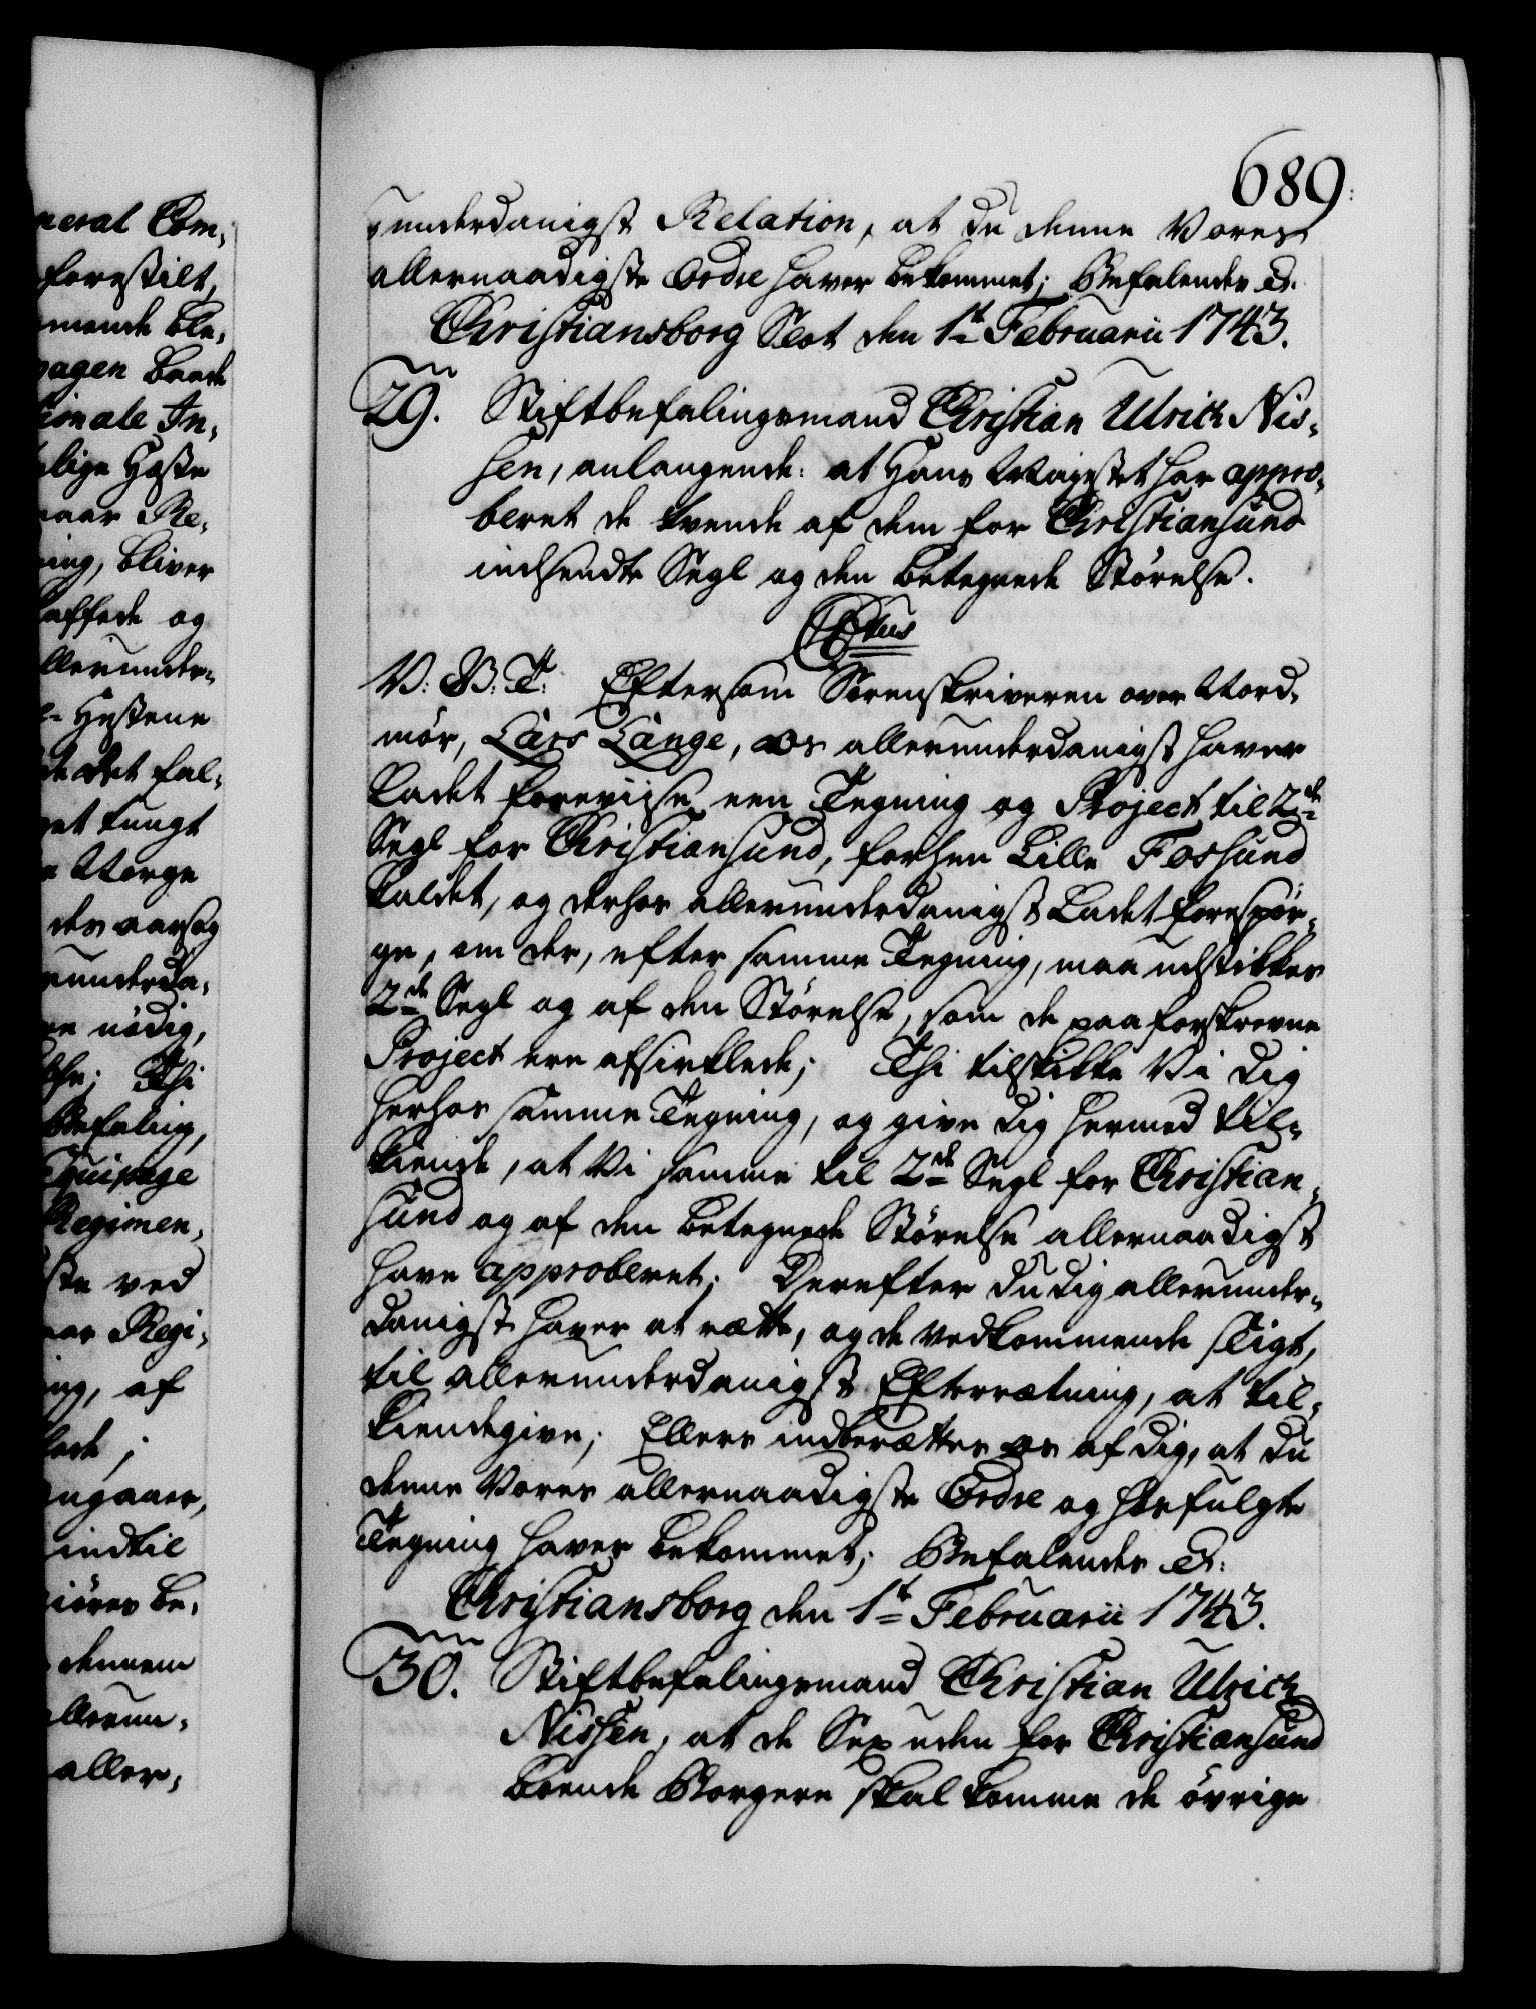 689.
underdanigst Relation, at du denne Vores
allernaadigste Ordre haver bekommet; Befalendes &.
Christiansborg Slot den 1te Februarii 1743.
29. Stiftbefalingsmand Christian Ulrich Nis-
sen, anlangende: at Hans Mayestet har appro-
beret de tvende af dem for Christiansund
indsendte Segl og den betegnede Störelse.
V: G: T: Eftersom Sorenskriveren over Nord-
mör, Lars Lange, os allerunderdanigst haver
ladet foreviise een Tegning og Project til 2de
Segl for Christiansund, forhen Lille Fossund
kaldet, og derhos allerunderdanigst ladet forespör-
ge, om der, efter samme Tegning, maa udstikkes
2de Segl og af den Störelse, som de paa forskrevne
Project ere afsirklede; Thi tilskikke Vi dig
herhos samme Tegning, og give dig hermed til-
kiende, at Vi samme til 2de Segl for Christian-
sund og af den betegnede Störelse allernaadigst
have approberet; Derefter du dig allerunder-
danigst haver at rætte, og de vedkommende sligt,
til allerunderdanigst Efterrætning, at til-
kiendegive; Ellers indberættes os af dig, at du
denne Vores allernaadigste Ordre og hosfulgte
Tegning haver bekommet; Befalendes &:
Christiansborg den 1te Februarii 1743.
30. Stiftbefalingsmand Christian Ulrich
Nissen, at de Sex uden for Christiansund
boende Borgere skal komme de övrige
neral Com-
forestilt,
mende ble-
pagen baade
tionale In-
lige Heste
naar Re-
ning, bliver
kaffede og
llerunder-
Hestene
de det fal-
et tungt
Norge
des aarsag
runderda-
re nödig,
Thi
Befaling,
Equipage
Regimen-
ste ved
Regi-
ing, af
angaaer,
indtil
giöres be-
dennem
llerun-
aller-